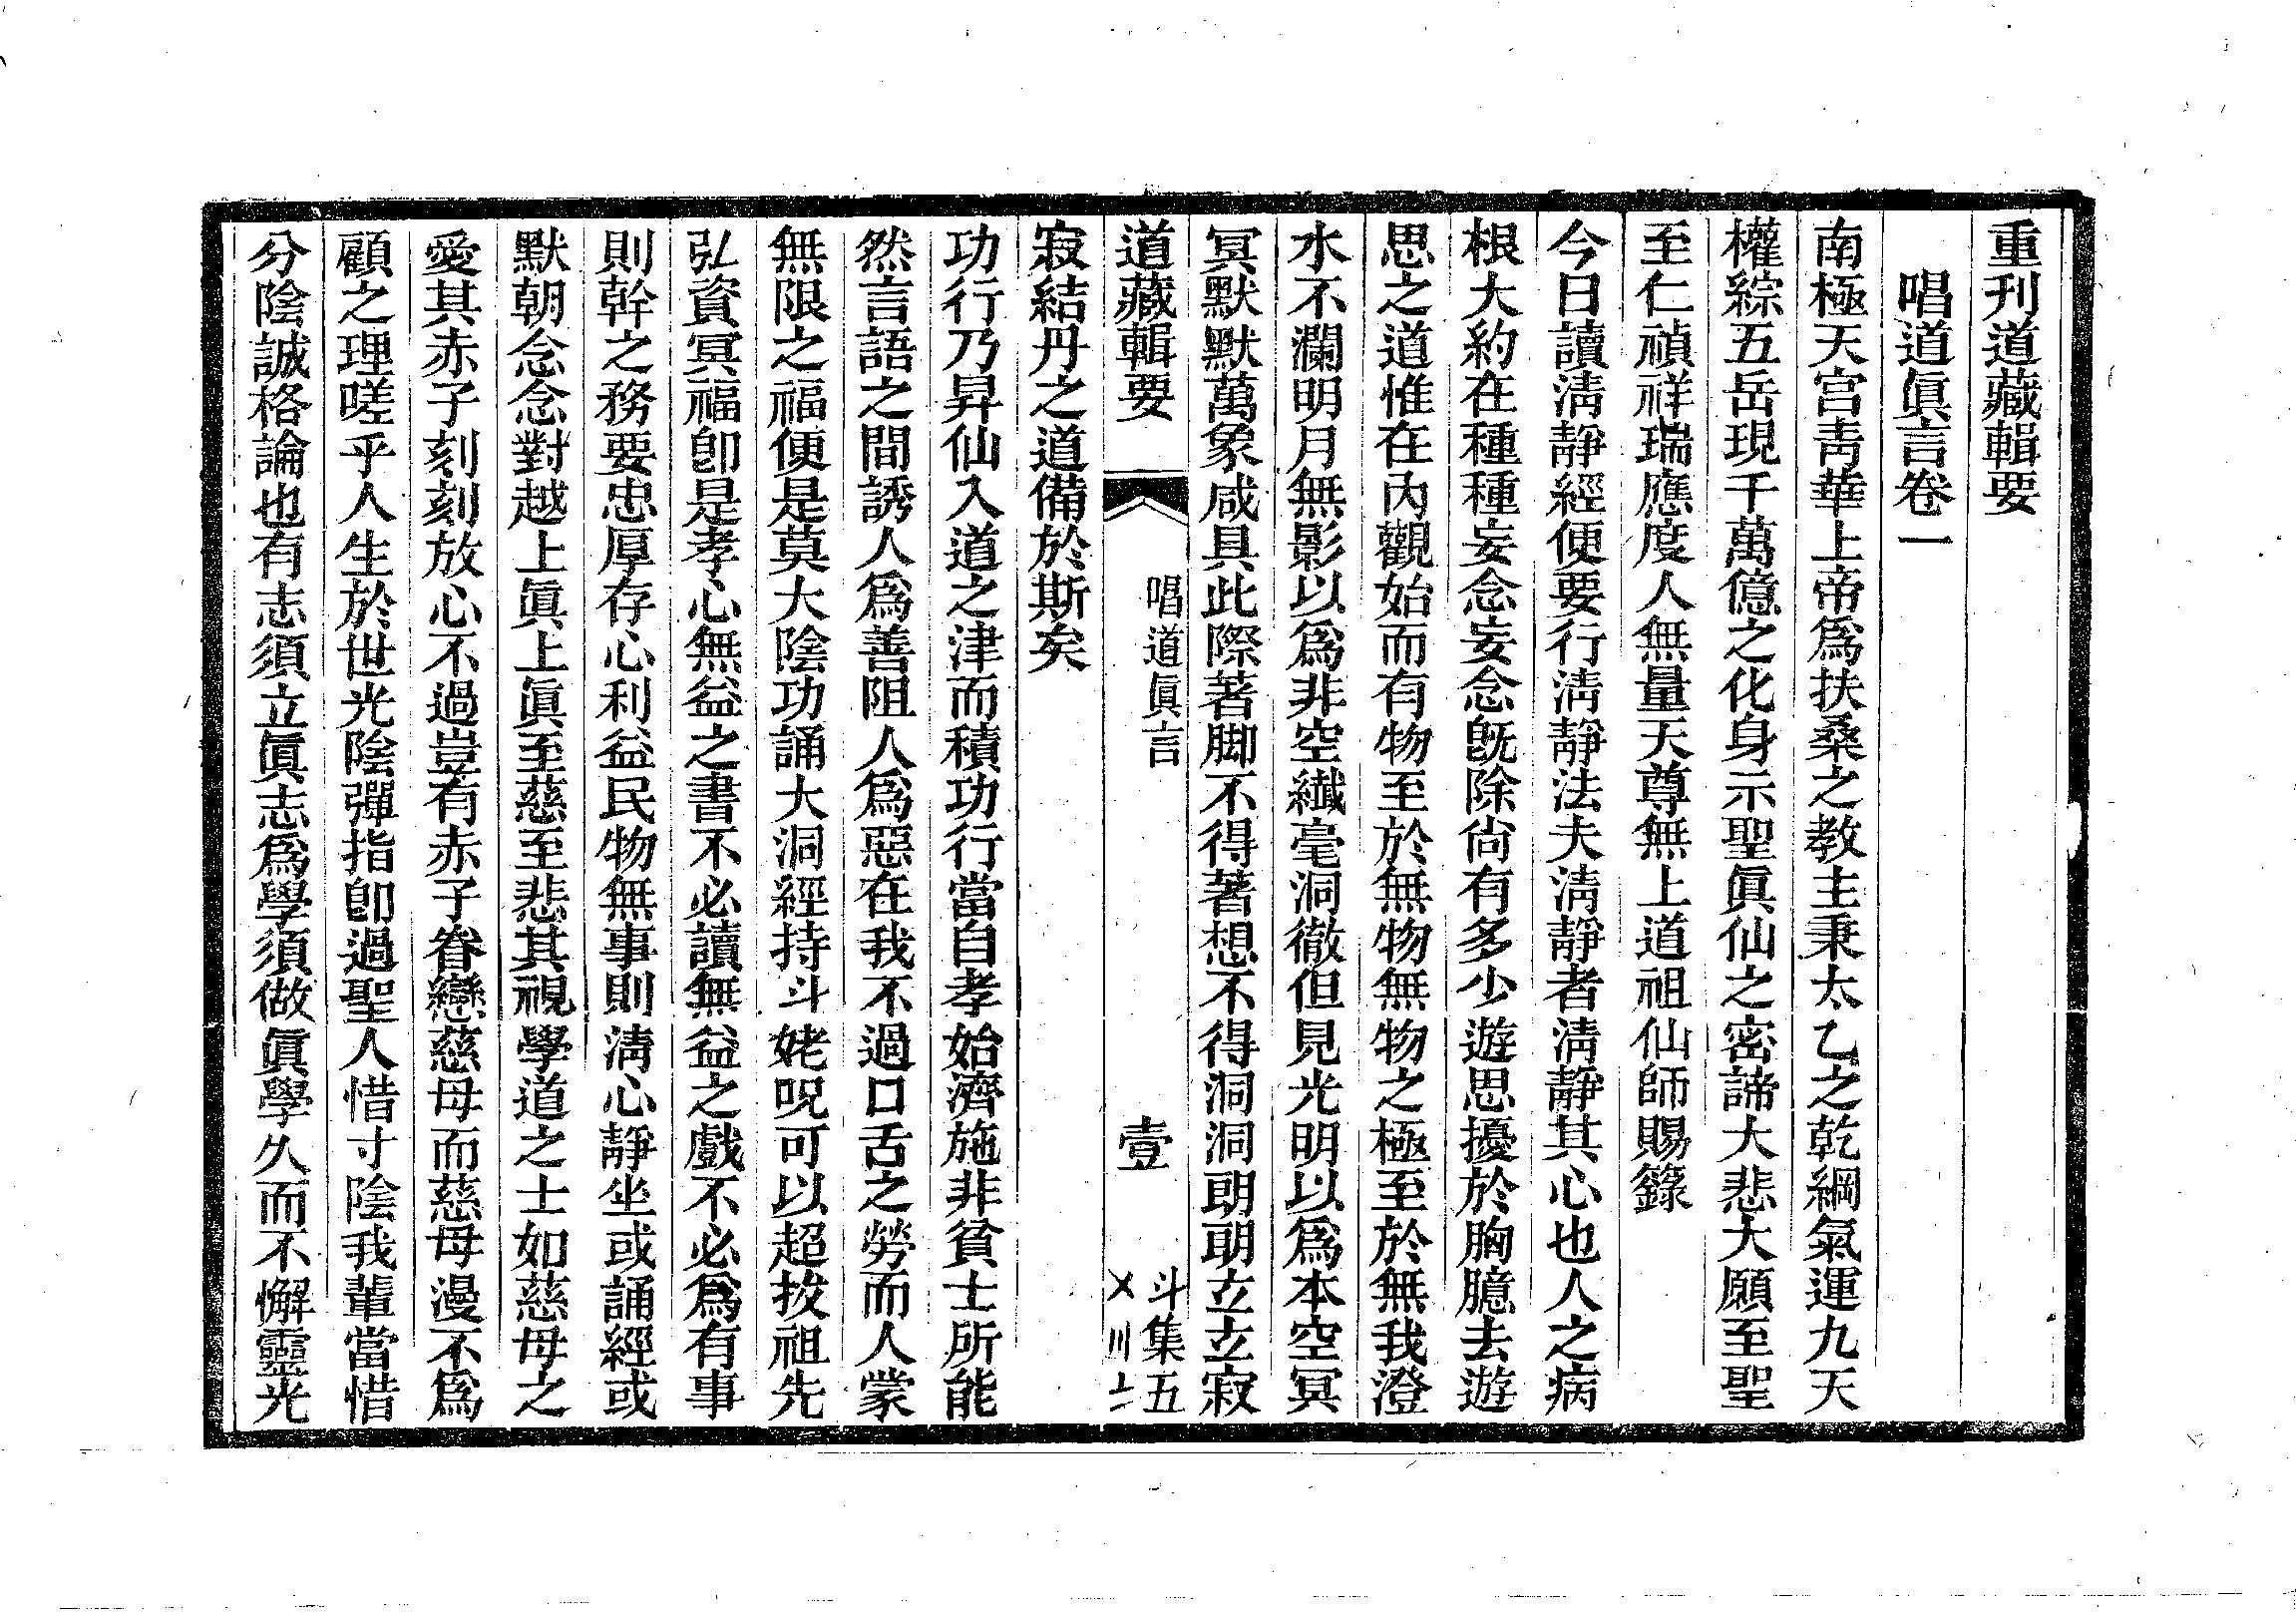 重刊道藏輯要
唱道眞言卷一
南極天宮靑華上帝爲扶桑之教主秉太乙之乾綱氣運九天
權綜五岳現千萬億之化身示聖眞仙之密諦大悲大願至聖
至仁禎祥瑞應度人無量天尊無上道祖仙師賜籙
今日讀淸靜經便要行淸靜法夫淸靜者淸靜其心也人之病
根大約在種種妄念妄念旣除尙有多少遊思擾於胸臆去遊
思之道惟在內觀始而有物至於無物無物之極至於無我澄
水不瀾明月無影以爲非空纖毫洞徹但見光明以爲本空冥
冥默默萬象咸具此際著脚不得著想不得洞洞朗朗立立寂
道藏輯要
唱道眞言
壹
斗集五
〤〣〦
寂結丹之道備於斯矣
功行乃昇仙入道之津而積功行當自孝始濟施非貧士所能
然言語之間誘人爲善阻人爲惡在我不過口舌之勞而人蒙
無限之福便是莫大陰功誦大洞經持斗姥呪可以超拔祖先
弘資冥福卽是孝心無益之書不必讀無益之戲不必爲有事
則幹之務要忠厚存心利益民物無事則淸心靜坐或誦經或
默朝念念對越上眞上眞至慈至悲其視學道之士如慈母之
愛其赤子刻刻放心不過豈有赤子眷戀慈母而慈母漫不爲
顧之理嗟乎人生於世光陰彈指卽過聖人惜寸陰我輩當惜
分陰誠格論也有志須立眞志爲學須做眞學久而不懈靈光